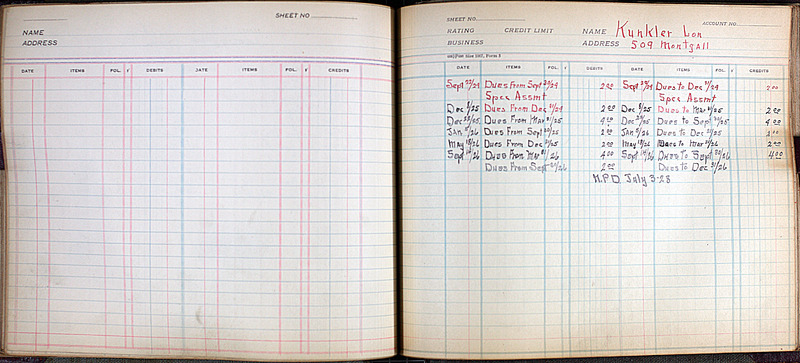 SHEET NO.
NAME
ADDRESS
DATE ITEMS FOL. √ DEBITS DATE ITEMS FOL. √ CREDITS
SHEET NO. ACCOUNT NO.
RATING CREDIT LIMIT NAME Kunkler Lon
BUSINESS ADDRESS 509 Montgall
DATE ITEMS FOL. √ DEBITS DATE ITEMS FOL. √ CREDITS
Sept Dues From Sept 30/24 2.00 Sept Dues to Dec 31/24 2.00
Spec Assmt Spec Assmt
Dec Dues From Dec 31/24 2.00 Dec Dues to Mar 31/25 2.00
Dec Dues From Mar 31/25 4.00 Dec Dues to Sept 30/25 4.00
Jan Dues From Sept 30/25 Jan Dues to Dec 31/25
May 18/26 Dues From Dec 31/25 2.00 May 18/26 Dues to Mar 31/26 2.00
Sept Dues From Mar 31/26 4.00 Sept Dues To Sept 30/26 4.00
Dues From Sept 30/26 2.00 Dues to Dec 31/26
N.P.D. July 3-28